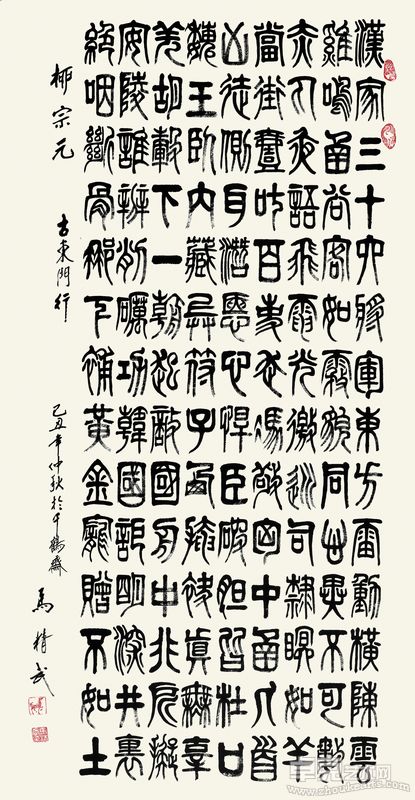 漢家三十六將軍東方雷動橫陳雲
雞鳴函谷客如霧貌同心異不可數
赤丸夜語飛電光徼巡司隸眠如羊
當街壹叱百吏走馮敬胸中函匕首
凶徒側耳潛愜心悍臣破胆皆杜口
魏王臥內藏兵符子西掩袂真無辜
羌胡轂下一朝起敵國舟中非所擬
安陵誰辨削礪功韓國詎明深井裏
絕咽斷骨那下補黃金寵贈不如土
柳宗元 古東門行
己丑年仲秋於千鶴齋 馬精武